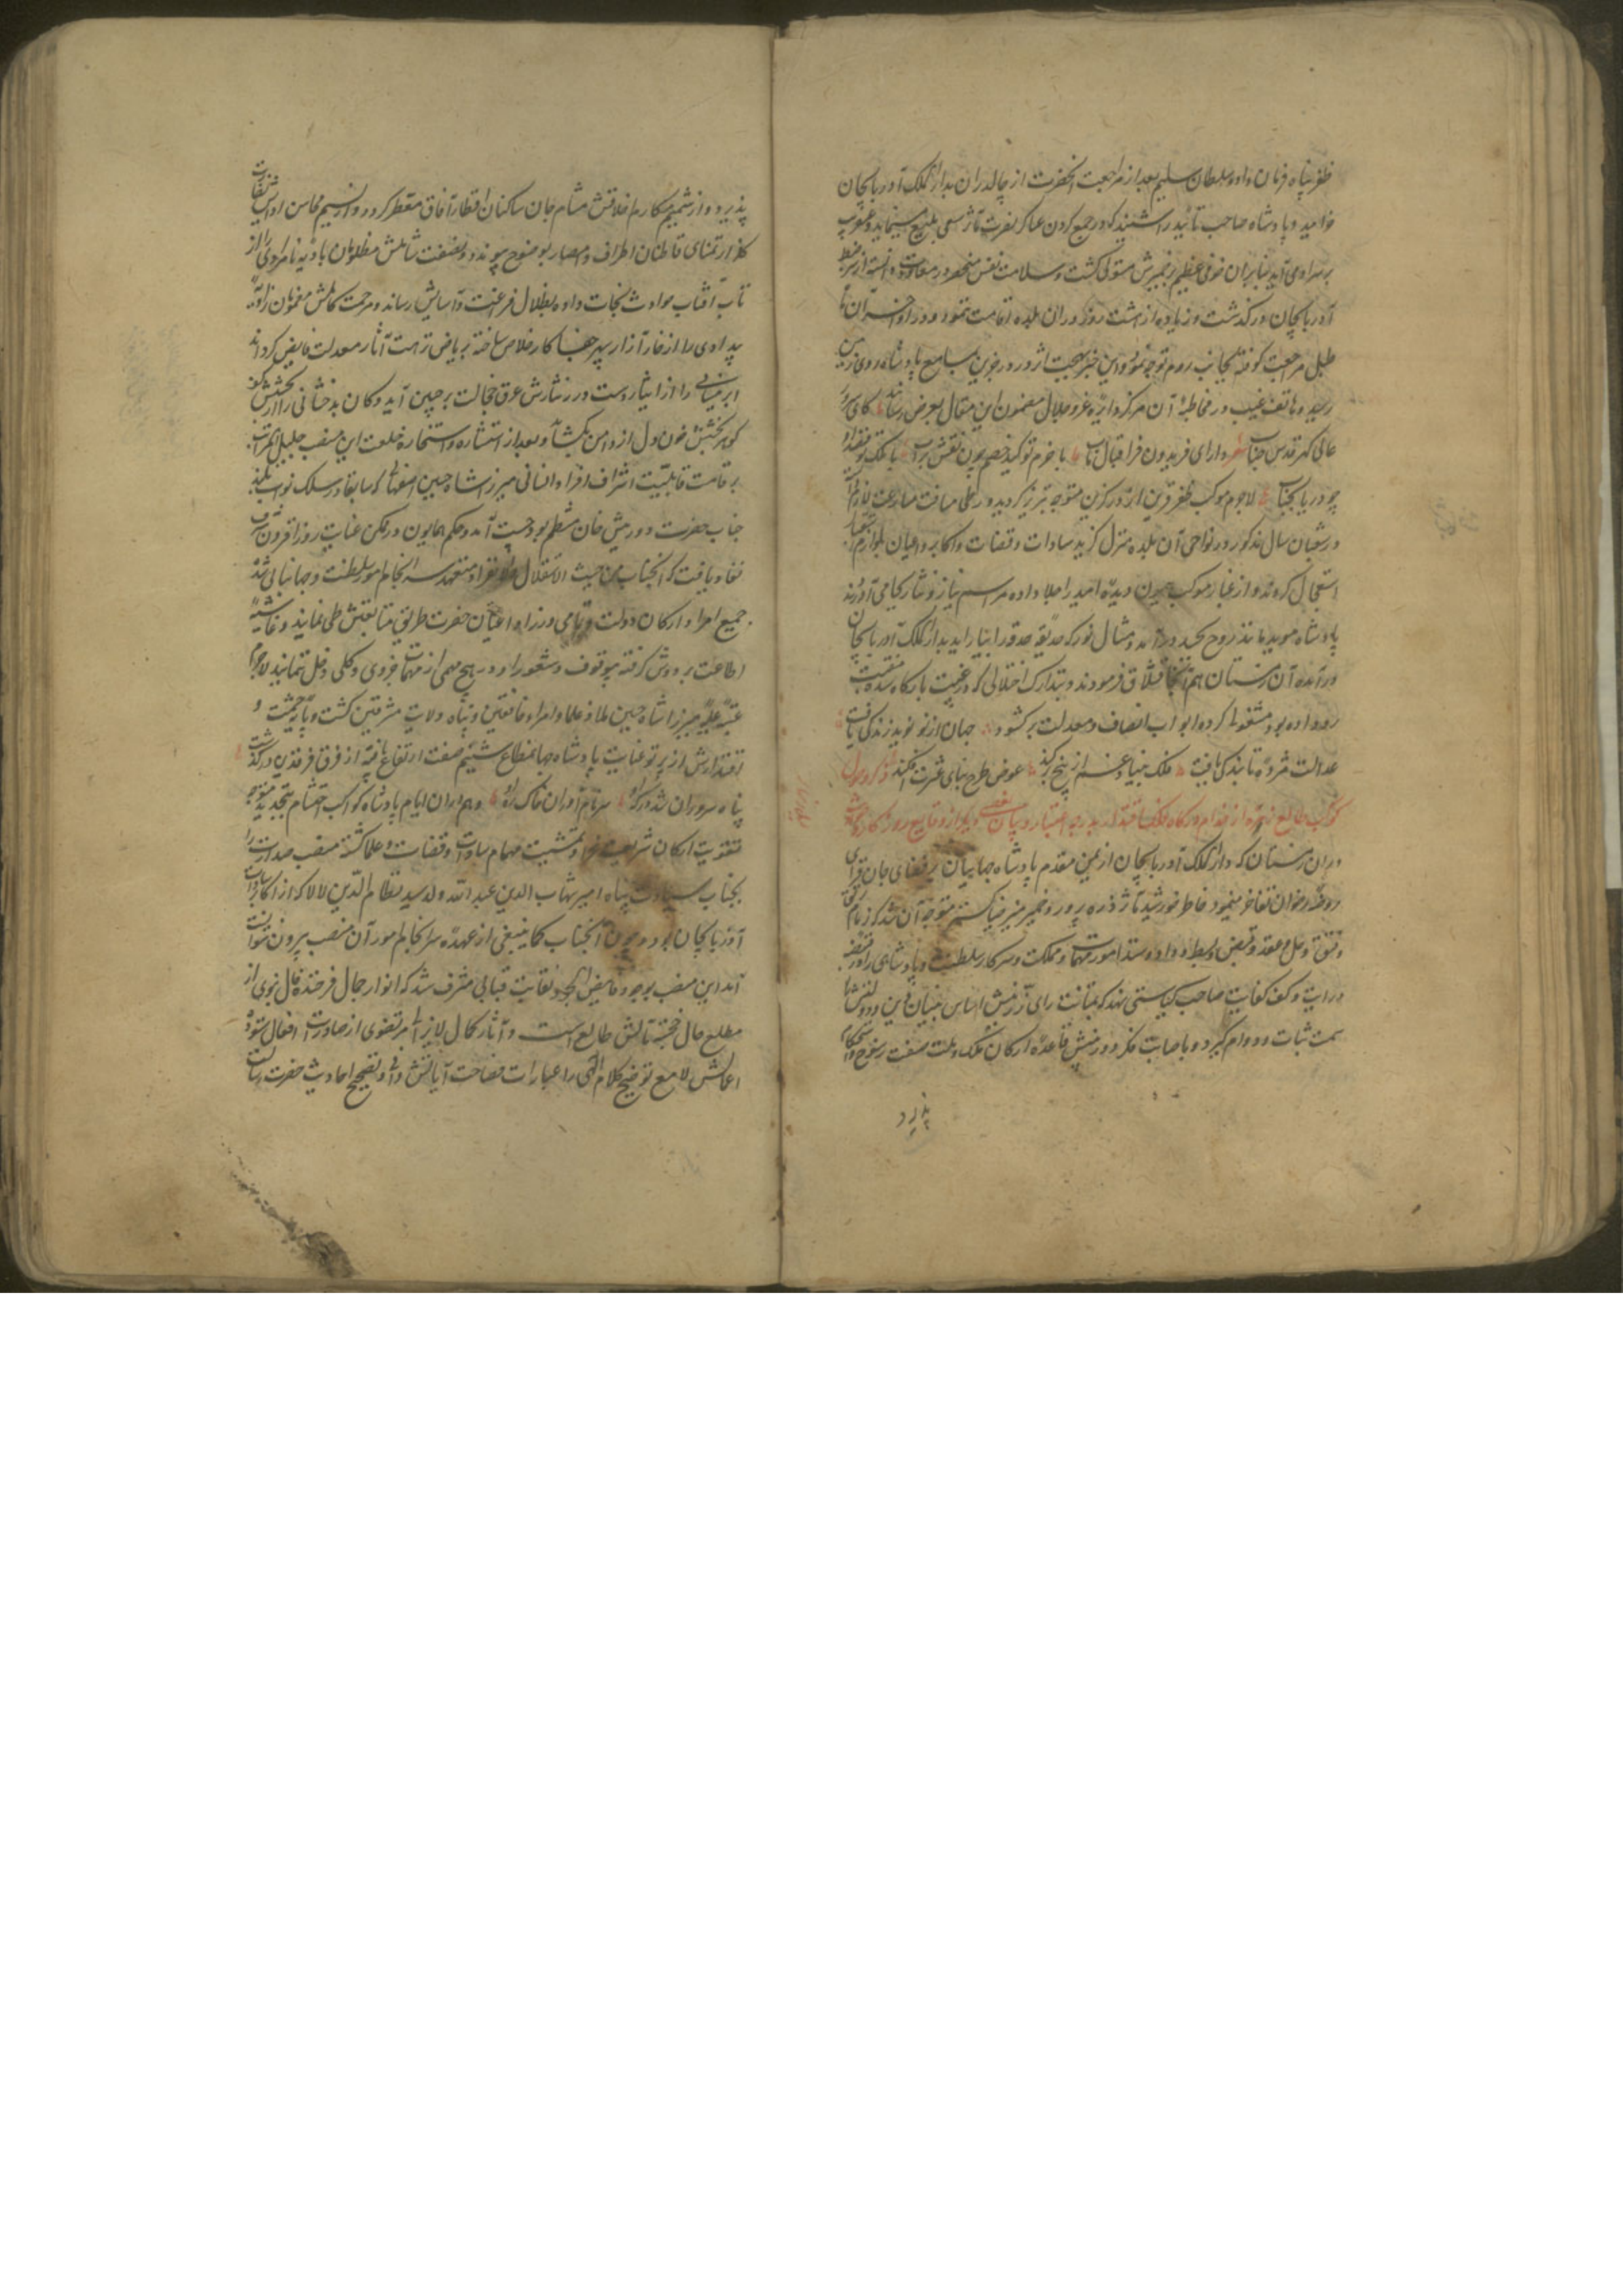 ظفر پناه فرمان داد و سلطان سلیم بعد از مراجعت آنحضرت از چالدران بدار الملک آذربایجان
خرامید و پادشاه صاحب تأیید را شنید که در جمع کردن عساکر نصرت مآثر سعی بلیغ مینماید و عنقریب
بر سر او می آید بنابر آن خوفی عظیم بر ضمیرش مستولی گشت و سلامت نفس منحصر در معاودت دانسته از سر ضبط
آذربایجان در گذشت و زیاده از هشت روز در آن بلده اقامت ننمود و در اواخر
طبل مراجعت کوفته بجانب روم توجه نمود و این خبر بهجت اثر در جوین بمسامع پادشاه روی زمین
رسید و هاتف غیب در مخاطبهٔ آن مرکز دایرهٔ عز و جلال مضمون این مقال بعرض رسانید که ای
عالی گهر قدس جناب دارای فریدون فر اقبال مآب با خرم تو کید خصم چون نقش بر آب با ملک تو
چو دریا بجناب لاجرم موکب ظفر قرین از درگزین متوجه تبریز گردید و در طی مسافت مسارعت
در شعبان سال مذکور در نواحی آن بلده منزل گزید سادات و قضات و اکابر و اعیان بلوازم
استعجال کردند و از غبار موکب همیون دیدهٔ امید را جلا داده مراسم نیاز و نثار بجای آوردند
پادشاه مؤید مانند روح بجسد در آمد و مثال نور که حدیقهٔ حدقه را بیاراید بدار الملک آذربایجان
در آمده آن زمستان هم آنجا قشلاق فرمودند و بتدارک اختلالی که در غیبت بارگاه سده منقبت
رو داده بود مشغولی کرده ابواب انصاف و معدلت بر گشود جهان از نو نوید زندگی یافت
عدالت مژدهٔ تابندگی یافت فلک بنیاد غم از بیخ بر کند عوض طرح بنای عشرت افکند ذکر وصول
کوکب طالع زمره از خدام درگاه فلک اقتدار بدرجهٔ اعتبار و بیان بعضی دیگر از وقایع روزگار
در آن زمستان که دار الملک آذربایجان از یمن مقدم پادشاه جهانبان بر فضای جان فزای
روضهٔ رضوان تفاخر مینمود خاطر خورشید مآثر ذره پرور و ضمیر منیر ضیا گستر متوجه آن شد که زمام
رتق و فتق و حل و عقد و قبض و بسط و داد و ستد امور مهمات مملکت و سرکار سلطنت و پادشاهی را در قبضه
درایت و کف کفایت صاحب کیاستی نهد که بمتانت رای رزینش اساس بنیان دین و دولت
سمت ثبات و دوام گیرد و باصابت فکر دوربینش قاعدهٔ ارکان ملک و ملت صفت رسوخ و استحکام
پذیرد
پذیرد و از شمیم مکارم اخلاقش مشام جان ساکنان اقطار آفاق معطر گردد و از نسیم محاسن
گلزار تمنای قاطنان اطراف و امصار بوضوح پیوندد و نصفت شاملش مظلومان بادیهٔ نامرادی را از
تاب آفتاب حوادث نجات داده بظلال فرغنت و آسایش رساند و مرحمت کاملش مغمومان زاویهٔ
بیدادی را از خار آزار سپهر جفا کار خلاص ساخته بریاض نزهت آثار معدلت فایض گرداند
ابر نیسانی را از ایثار دست درر نثارش عرق خجالت بر جبین آید و کان بدخشانی را از رشک
گوهر بخشش خون دل از دامن بگشاید و بعد از استشاره و استخاره خلعت این منصب جلیل المراتب
بر قامت قابلیت اشرف افراد انسانی میرزا شاه حسین اصفهانی که سابقا در سلک نواب
جناب حضرت دورمیش خان منتظم بود چست آمد و حکم همایون از مکمن عنایت روز افزون شرف
نفاذ یافت که آنجناب من حیث الاستقلال و الانفراد متعهد سرانجام امور سلطنت و جهانبانی شده
جمیع امرا و ارکان دولت و تمامی وزرا و اعیان حضرت طریق متابعتش طی نمایند و غاشیهٔ
اطاعت بر دوش گرفته بی وقوف و شعور او در هیچ مهمی از مهمات جزوی و کلی دخل ننمایند لاجرم
عتبهٔ علیهٔ میرزا شاه حسین ملاذ علما و امرا و خافقین و پناه ولایت مشرقین گشت و پایهٔ حشمت و
اقتدارش از پرتو عنایت پادشاه جهانمطاع ستیم صفت ارتفاع یافته از فرق فرقدین در گذشت
پناه سروران شد درگه او سر نام آوران خاک ره او و هم در آن ایام پادشاه کواکب احتشام بتجدید متوجه
تقویت ارکان شریعت غرا و تمشیت مهام سادات و قضات و علما گشته منصب صدارت را
بجناب سیادت پناه امیر شهاب الدین عبد الله ولد سید نظام الدین لالا که از اکابر سادات
آذربایجان بود و چون آنجناب کما ینبغی از عهدهٔ سرانجام امور آن منصب بیرون نتوانست
آمد این منصب بوجود فایض الجود نقابت قبابی مشرف شد که انوار جمال فرخنده فال نبوی از
مطلع حال خجسته مآلش طالع است و آثار کمال لایزال مرتضوی از صادرات افعال ستودهٔ
اعمالش لامع توضیح کلام الهی را عبارات فصاحت آیاتش وافی و تصحیح احادیث حضرت رسالت